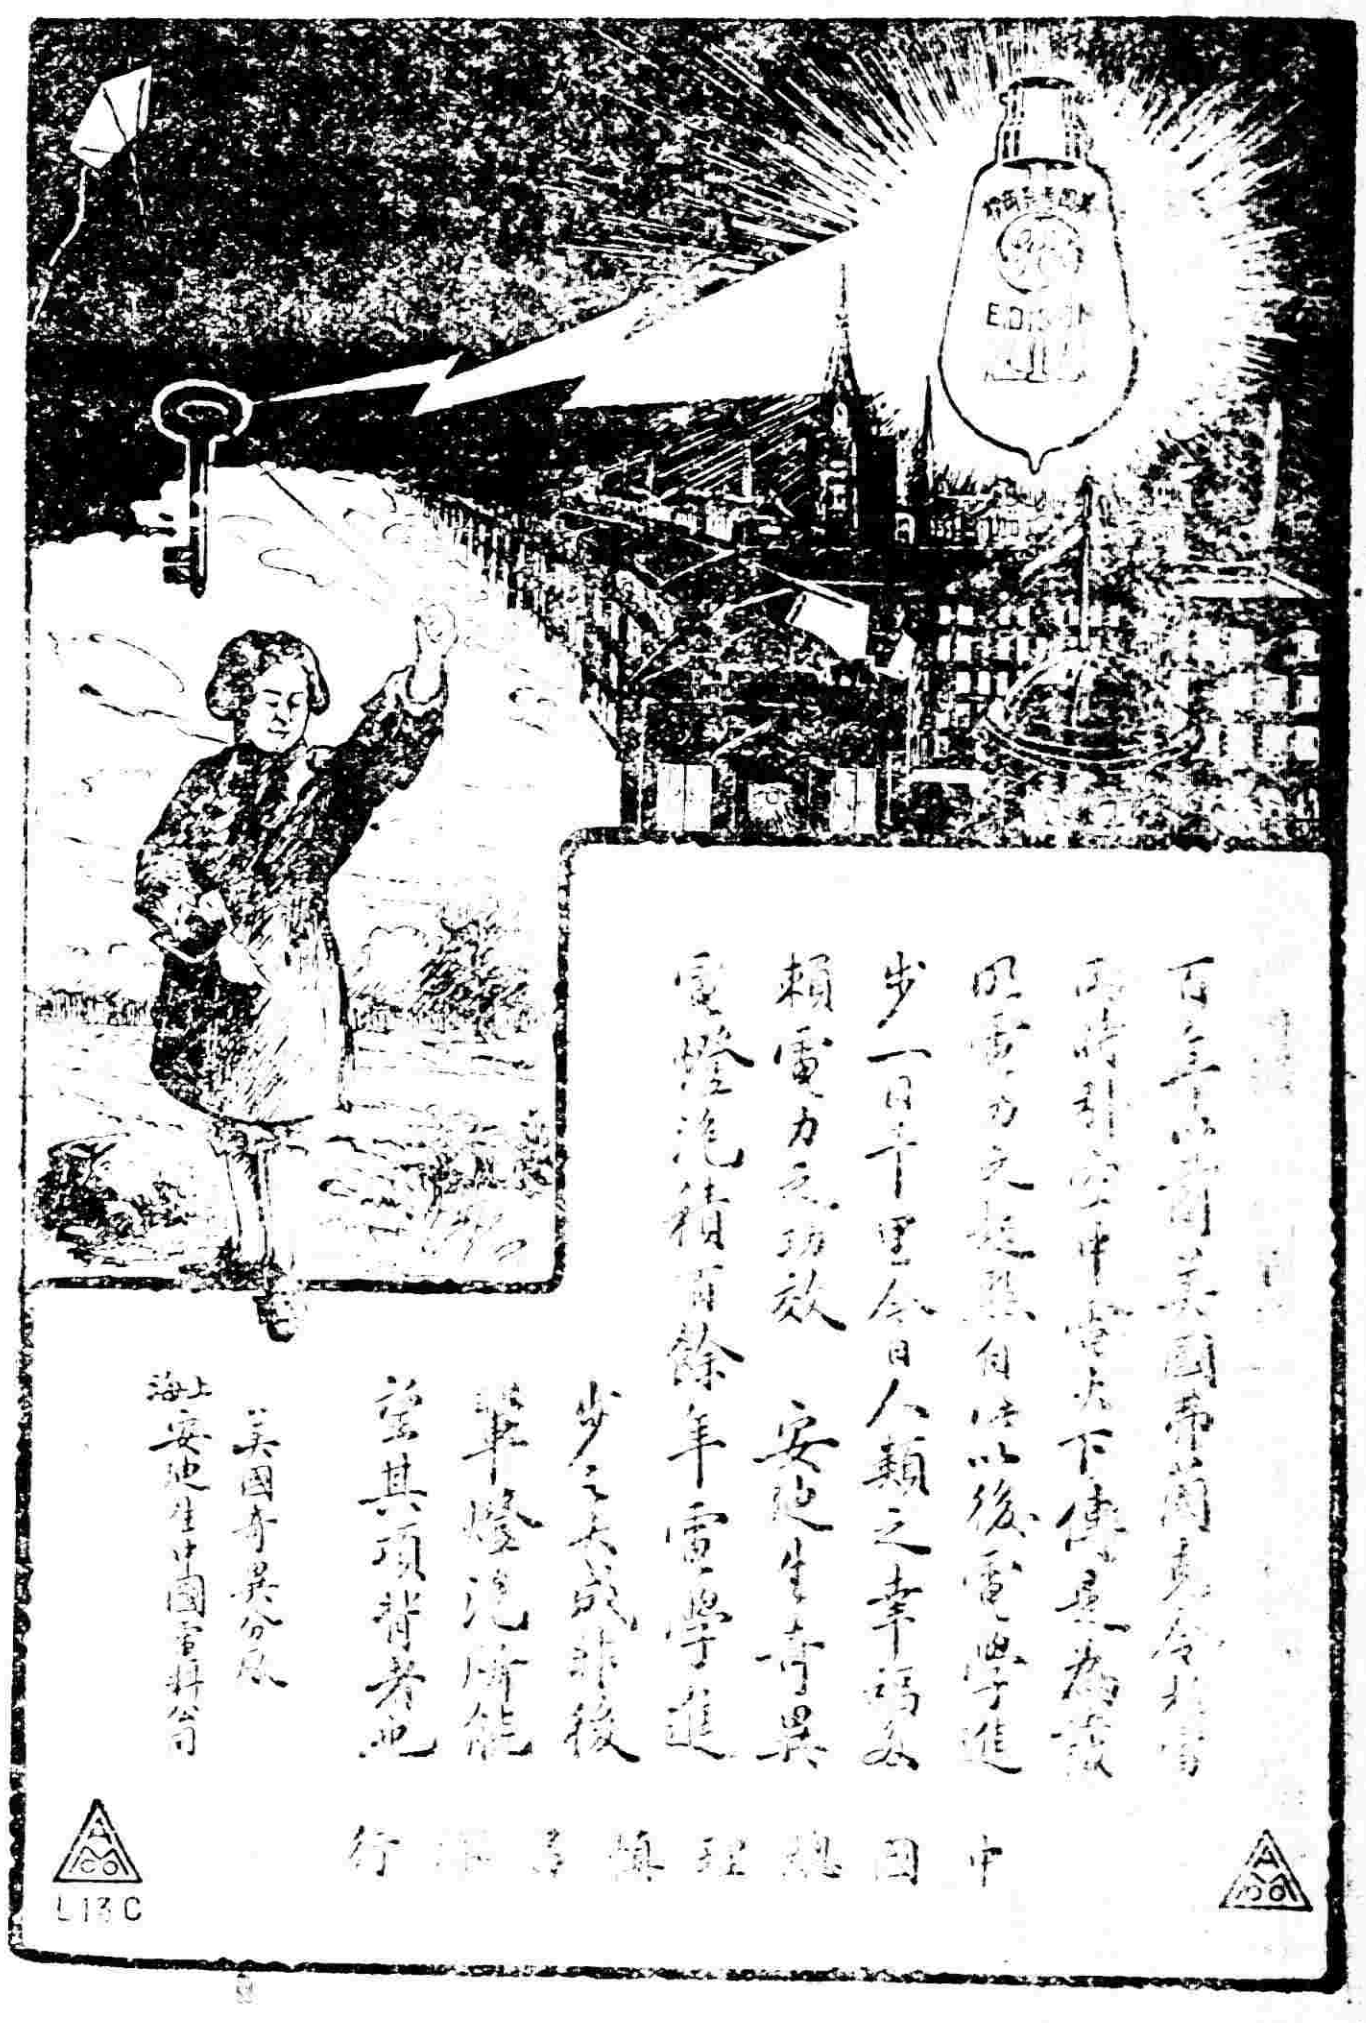 EDISON
百年以前美國弗蘭克令於雷
雨時引空中電氣下傳是為發
明電力之起點自此以後電學進
步一日千里今日人類之幸福多
賴電力之功效 安迪生奇異
電燈泡積百餘年電學進
步之大成非後
輩燈泡所能
望其項背者也
美國奇異分廠
上海安迪生中國電料公司
中國總理慎昌洋行
L13C